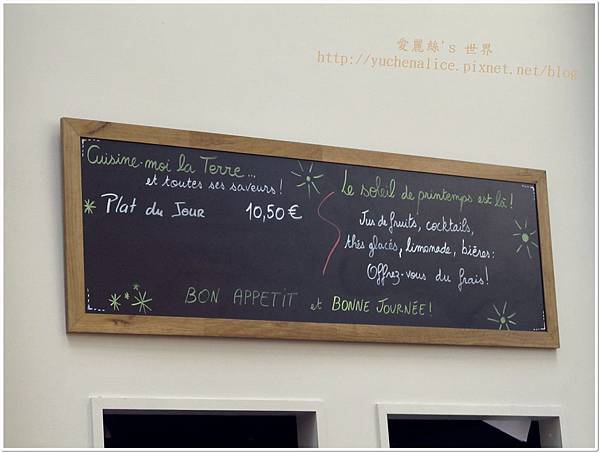 愛麗絲's 世界
http://yuchenalice.pixnet.net/blog
Cuisine-moi la Terre...
et toutes ses saveurs!
Plat du Jour 10,50€
Le soleil de printemps est là!
Jus de fruits, cocktails,
thés glacés, limonade, bières:
Offrez-vous du frais!
BON APPETIT et BONNE JOURNÉE!